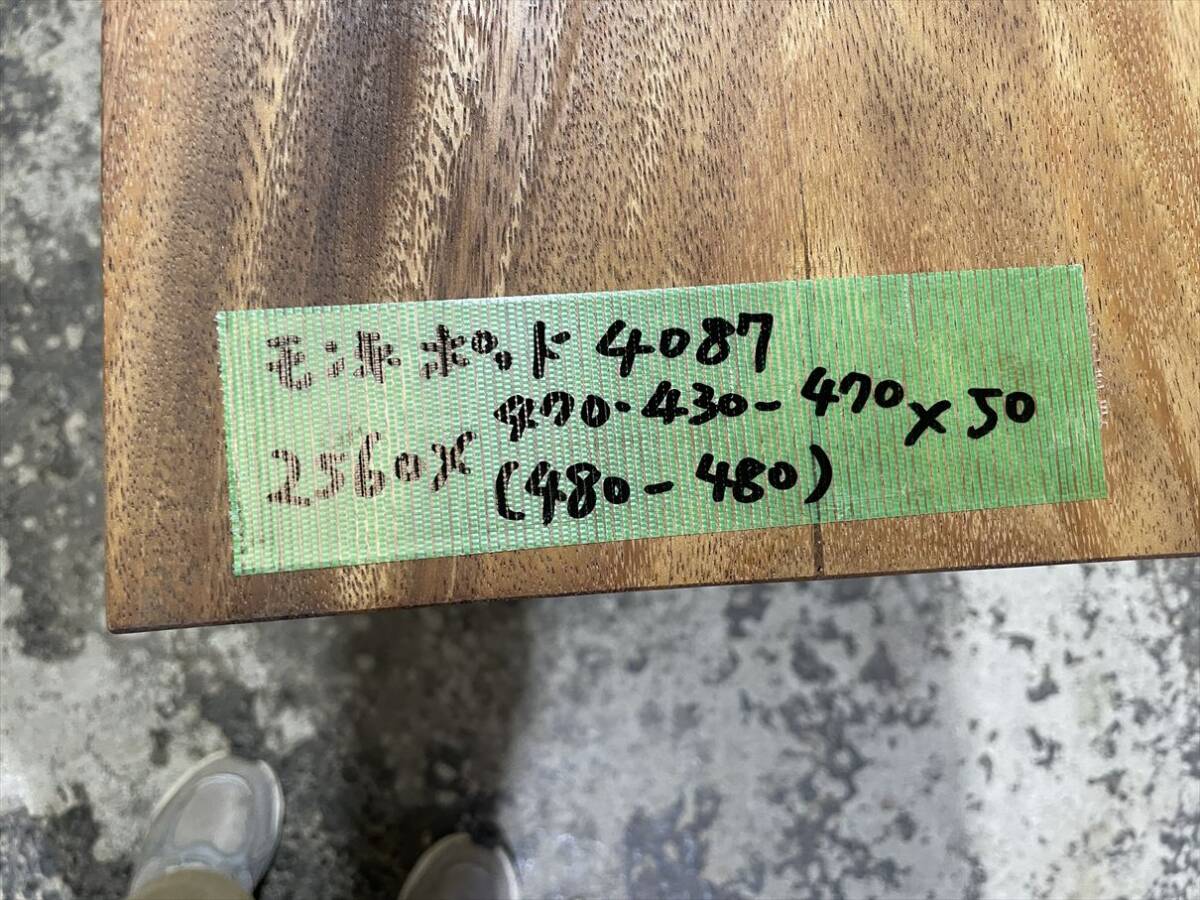 モンキポッド 4087
2560× 470-430-470×50
(480-480)